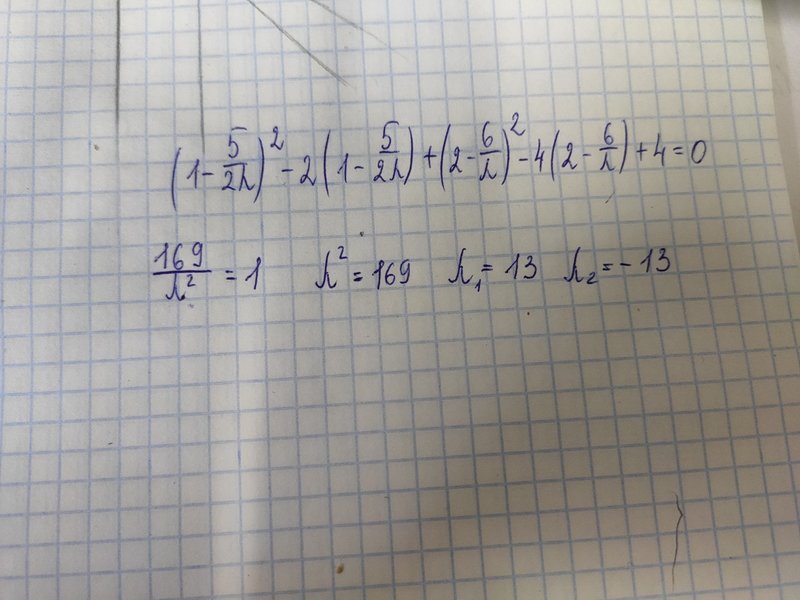 (1 - 5/2λ)² - 2(1 - 5/2λ) + (2 - 6/λ)² - 4(2 - 6/λ) + 4 = 0
169/λ² = 1 λ² = 169 λ₁ = 13 λ₂ = -13